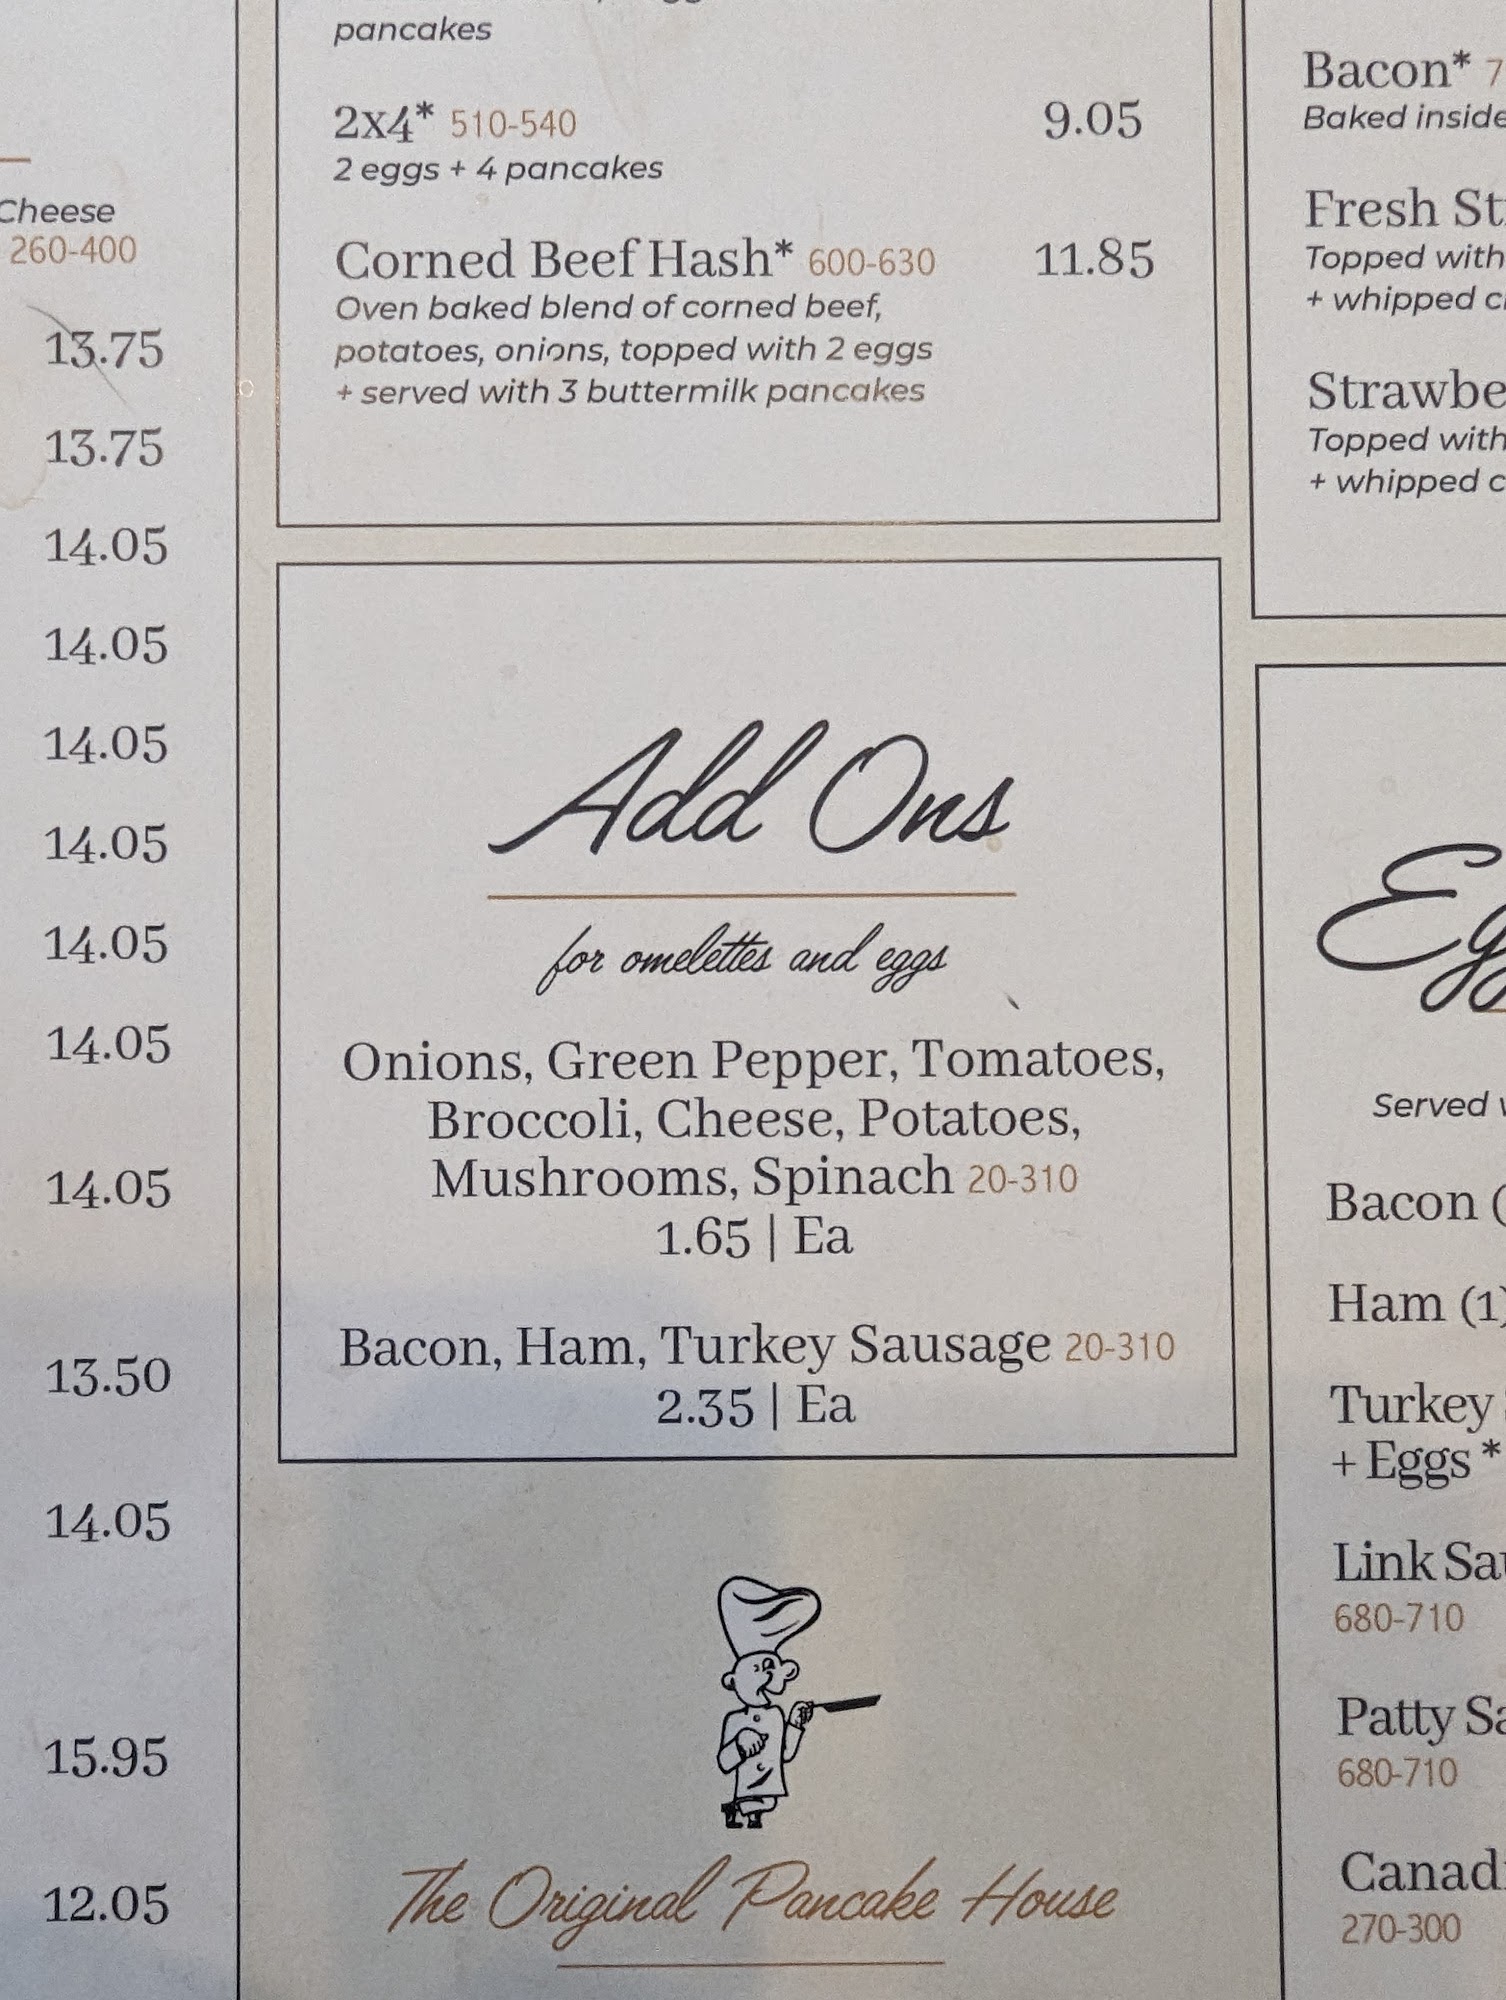 Cheese
260-400
13.75
13.75
14.05
14.05
14.05
14.05
14.05
14.05
14.05
13.50
14.05
15.95
12.05
pancakes
2x4* 510-540 9.05
2 eggs + 4 pancakes
Corned Beef Hash* 600-630 11.85
Oven baked blend of corned beef,
potatoes, onions, topped with 2 eggs
+ served with 3 buttermilk pancakes
Add Ons
for omelettes and eggs
Onions, Green Pepper, Tomatoes,
Broccoli, Cheese, Potatoes,
Mushrooms, Spinach 20-310
1.65 | Ea
Bacon, Ham, Turkey Sausage 20-310
2.35 | Ea
The Original Pancake House
Bacon* 7
Baked inside
Fresh
Topped with
+ whipped
Topped with
+ whipped
Served
Bacon (
Ham (1)
Turkey
+ Eggs *
Link
680-710
Patty
680-710
270-300